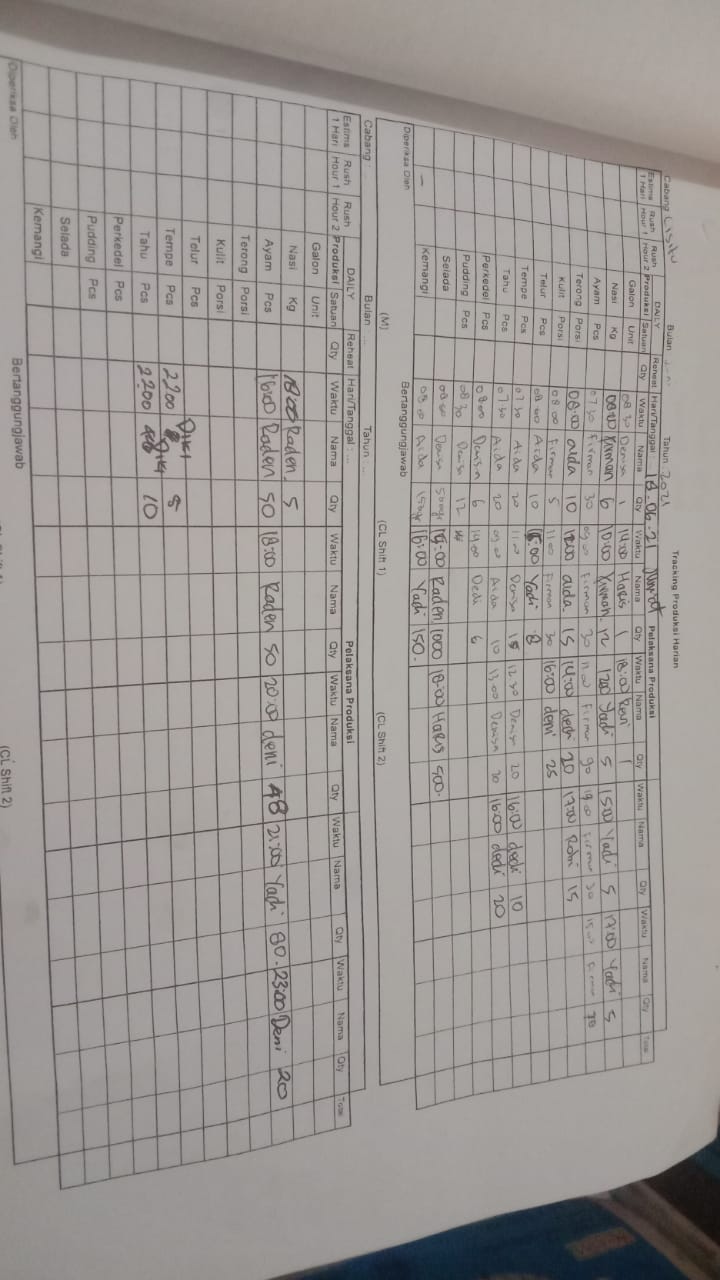 Tracking Produksi Harian
Cabang Cisitu Bulan Tahun 2021
Estimasi 1 Hari Rush Hour 1 Rush Hour 2 DAILY Produksi Satuan Reheat Qty Hari/Tanggal : 18.06.21 Jum'at Pelaksana Produksi
Waktu Nama Qty Waktu Nama Qty Waktu Nama Qty Waktu Nama Qty Waktu Nama Qty Total
Galon Unit 08 30 Denisa 1 14:00 Haris 1 18:00 Revi 1
Nasi Kg 08:00 Firman 6 10:00 Firman 12 1200 Yadi 5 15:00 Yadi 5 17:00 Yadi 5
Ayam Pcs 07 30 Firman 30 09.00 Firman 30 11.00 Firman 90 14.00 Firman 30 15.00 Firman 70
Terong Porsi 08:00 aida 10 1200 aida 15 14:00 dedi 20 17:00 Robi 15
Kulit Porsi 08 00 Firman 5 11:00 Firman 30 16:00 deni 25
Telur Pcs 08 00 Aida 10 15:00 Yadi 8
Tempe Pcs 07 30 Aida 20 11:00 Denisa 15 12 30 Denisa 20 16:00 dedi 10
Tahu Pcs 07 30 Aida 20 09.00 Aida 10 13.00 Denisa 20 16:00 dedi 20
Perkedel Pcs 08.00 Denisa 6 14.00 Dedi 6
Pudding Pcs 08 30 Denisa 12
Selada 08.00 Denisa 500gr 15:00 Raden 1000 18:00 Haris 500.
Kemangi 08.00 Aida 150gr 16:00 Yadi 150.
Diperiksa Oleh Bertanggungjawab
(M) (CL Shift 1) (CL Shift 2)
Cabang : Bulan : Tahun
Estimasi 1 Hari Rush Hour 1 Rush Hour 2 DAILY Produksi Satuan Reheat Qty Hari/Tanggal : Pelaksana Produksi
Waktu Nama Qty Waktu Nama Qty Waktu Nama Qty Waktu Nama Qty Waktu Nama Qty Total
Galon Unit
Nasi Kg 18:00 Raden. 5
Ayam Pcs 16:00 Raden 50 18:00 Raden 50 20:00 deni 48 21:00 Yadi 80. 23:00 Deni 20
Terong Porsi
Kulit Porsi
Telur Pcs
Tempe Pcs 2200 Diki 8
Tahu Pcs 2200 Diki 10
Perkedel Pcs
Pudding Pcs
Selada
Kemangi
Diperiksa Oleh Bertanggungjawab
(CL Shift 2)